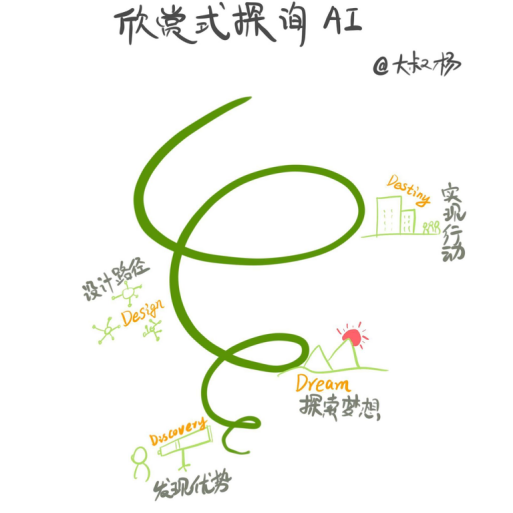 欣赏式探询 AI
@大叔杨
Destiny
实现行动
设计路径
Design
Dream
探索梦想
Discovery
发现优势